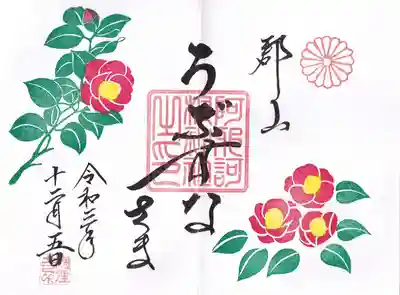 郡山
うぶすな
さま
令和三年
十二月五日
阿邪訶根神社之印